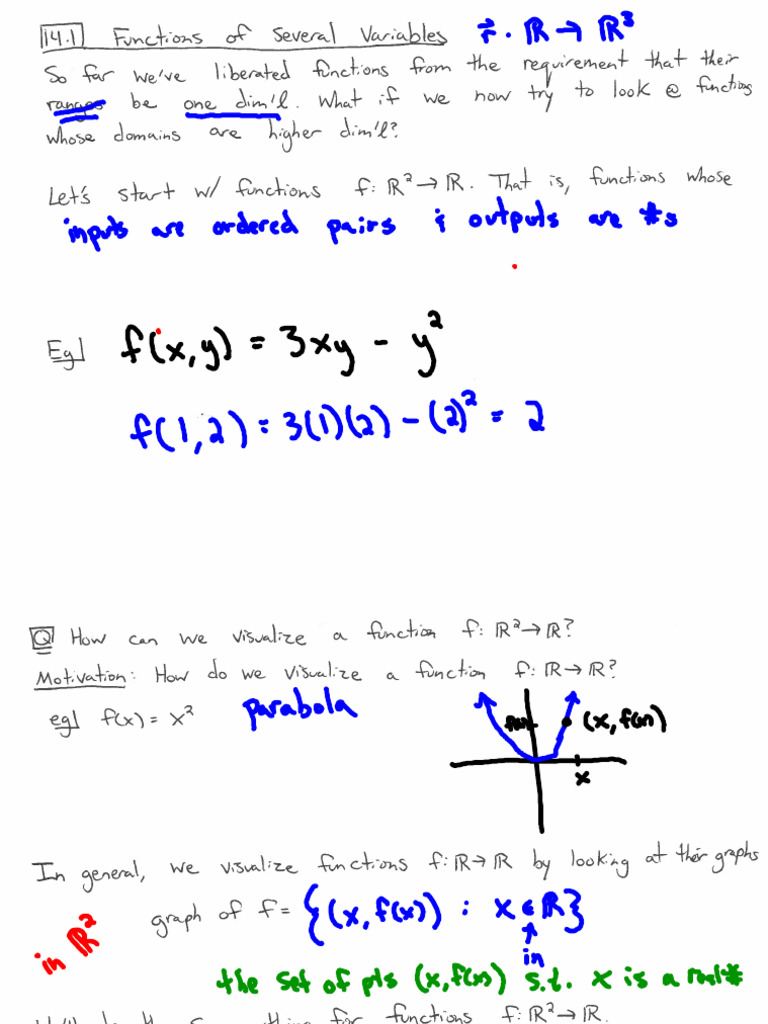 14.1 Functions of Several Variables r⃗: ℝ → ℝ³
So far we've liberated functions from the requirement that their
ranges be one dim'l. What if we now try to look @ functions
whose domains are higher dim'l?
Let's start w/ functions f: ℝ² → ℝ. That is, functions whose
inputs are ordered pairs & outputs are #s
Eg] f(x,y) = 3xy - y²
f(1,2) = 3(1)(2) - (2)² = 2
Q How can we visualize a function f: ℝ² → ℝ?
Motivation: How do we visualize a function f: ℝ → ℝ?
eg] f(x) = x² parabola
f(x) (x, f(x))
x
In general, we visualize functions f: ℝ → ℝ by looking at their graphs
graph of f = {(x, f(x)) : x ∈ ℝ}
in ℝ²
↑
in
the set of pts (x, f(x)) s.t. x is a real #
thing for functions f: ℝ² → ℝ.